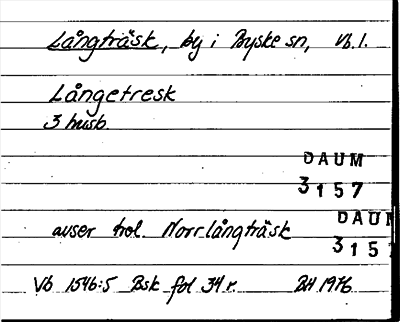 Långträsk, by i Byske sn, Vb. l.
Långetresk
3 husb.
DAUM
3157
avser trol. Norrlångträsk
DAUM
315
Vb 1546:5 Bsk fol 34 r. BH 1976